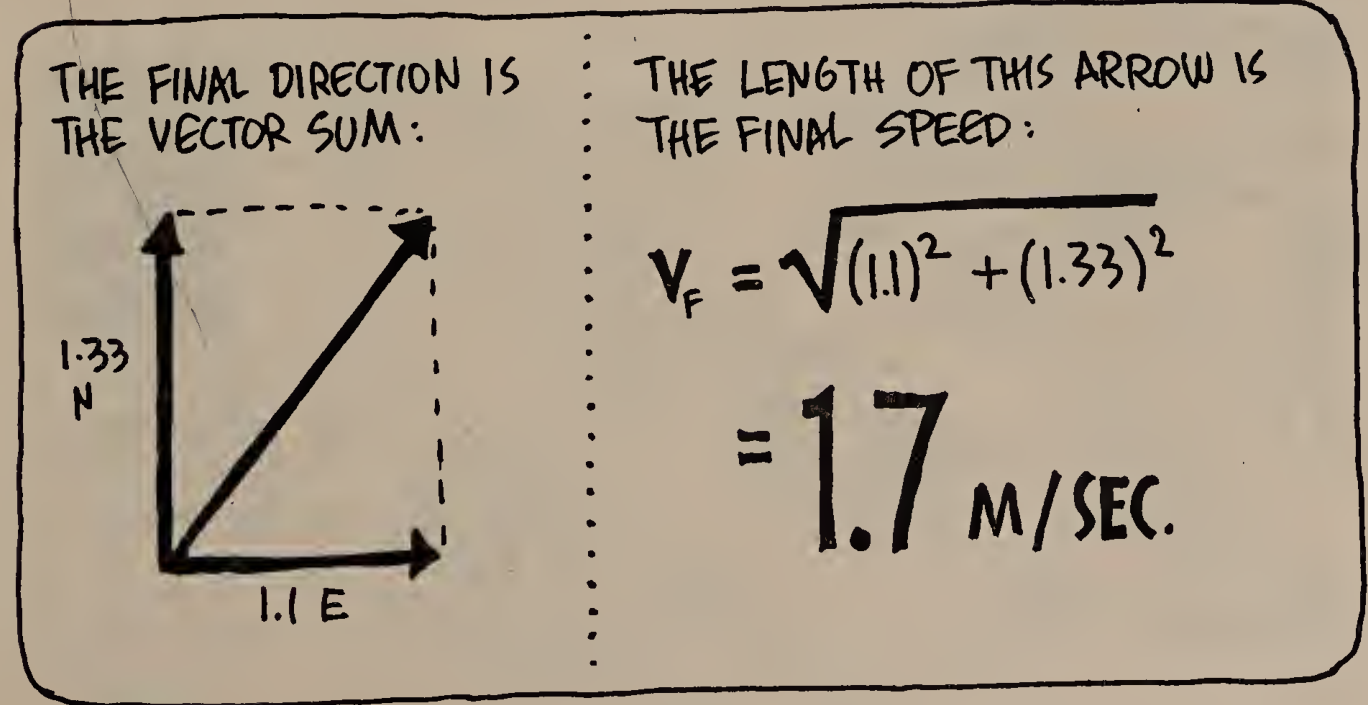 THE FINAL DIRECTION IS
THE VECTOR SUM:
1.33
N
1.1 E
THE LENGTH OF THIS ARROW IS
THE FINAL SPEED:
V_F = √(1.1)² + (1.33)²
= 1.7 M/SEC.